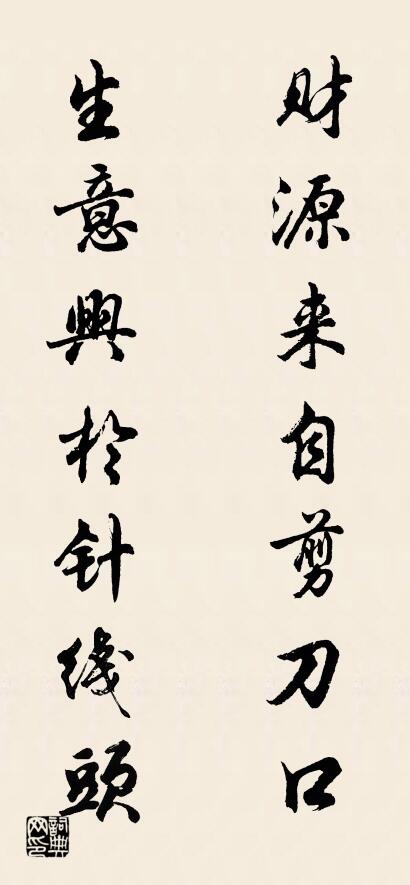 财源来自剪刀口
生意興於针线頭
詞典网印